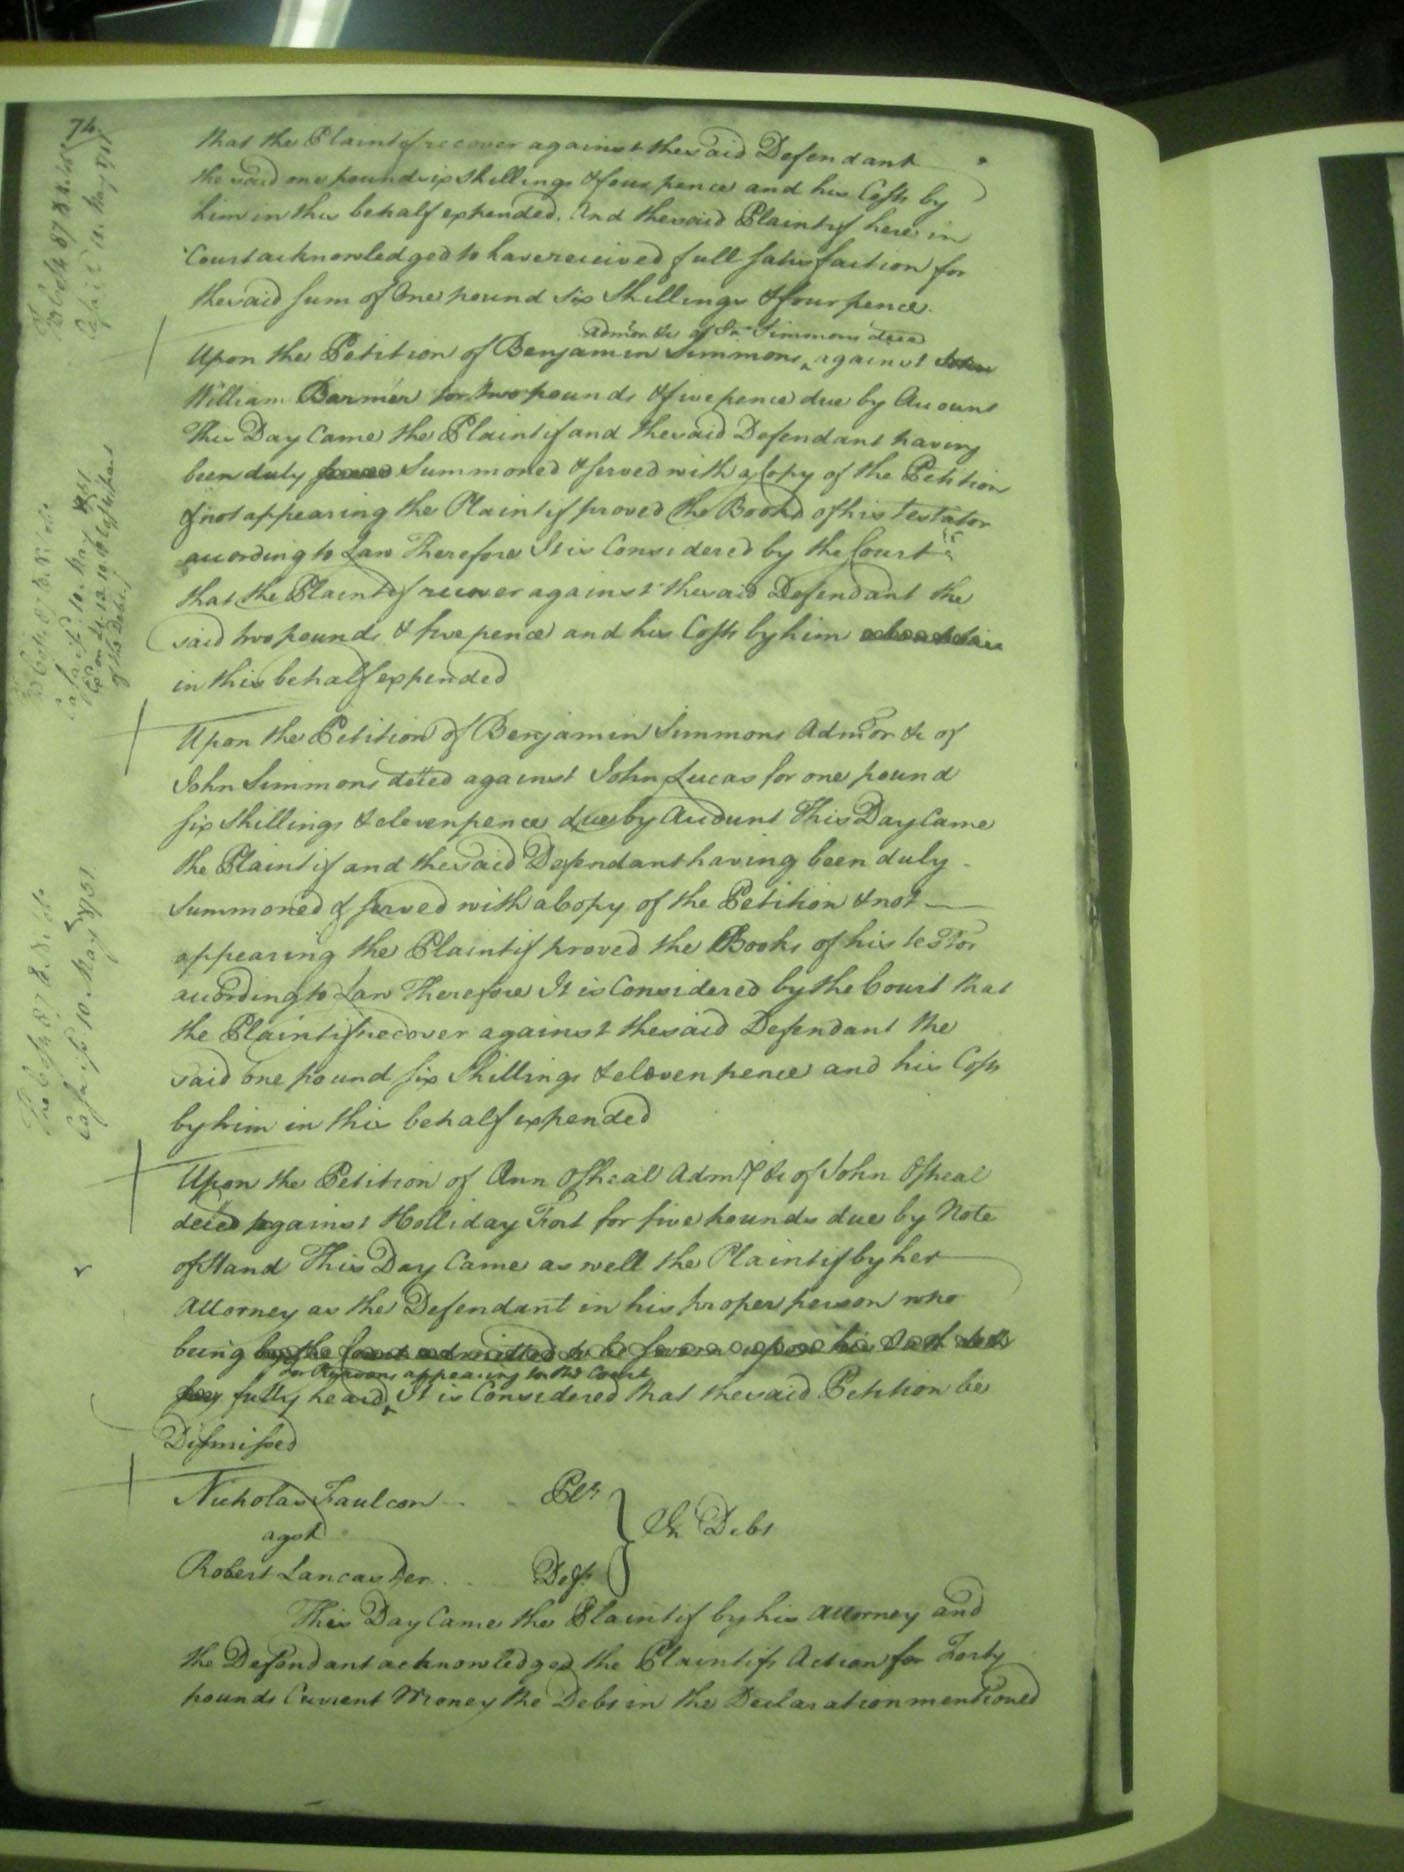 74
that the Plaintif recover against the said Defendant
the said one pound six shillings & four pence and his Costs by
him in this behalf expended. And the said Plaintif here in
Court acknowledged to have received full satisfaction for
the said sum of One pound six shillings & four pence.
Admor &c of Jno Simmons deced
Upon the Petition of Benjamin Simmons ‸ against John
William Barmer for two pounds & five pence due by Account
This Day Came the Plaintif and the said Defendant having
been duly served Summoned & served with a Copy of the Petition
& not appearing the Plaintif proved the Books of his Testator
according to Law Therefore It is Considered by the Court
that the Plaintif recover against the said Defendant the
said two pounds & five pence and his Costs by him
in this behalf expended
Upon the Petition of Benjamin Simmons Admor &c of
John Simmons deced against John Lucas for one pound
six shillings & eleven pence due by Account This Day Came
the Plaintif and the said Defendant having been duly
Summoned & served with a Copy of the Petition & not
appearing the Plaintif proved the Books of his testor
according to Law Therefore It is Considered by the Court that
the Plaintif recover against the said Defendant the
said one pound six shillings & eleven pence and his Costs
by him in this behalf expended
Upon the Petition of Ann Osheal Admx &c of John Osheal
deced against Holliday Fort for five pounds due by Note
of Hand This Day Came as well the Plaintif by her
Attorney as the Defendant in his proper person who
being by the Court admitted to be sworn upon his Oath
for Reasons appearing to the Court
fully heard ‸ It is Considered that the said Petition be
Dismissed
Nicholas Faulcon Plt
agst
In Debt
Robert Lancaster Deft
This Day Came the Plaintif by his Attorney and
the Defendant acknowledged the Plaintifs Action for Forty
pounds Current Money the Debt in the Declaration mentioned